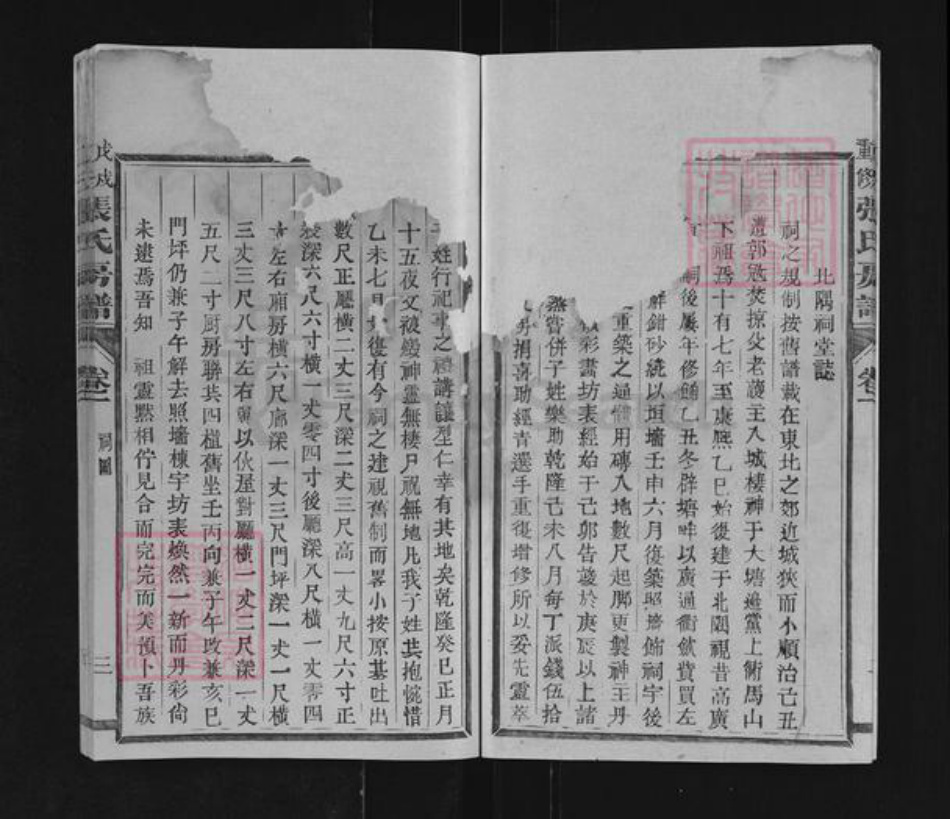 北隅祠堂誌
祠之規制按舊譜載在東北之郊近城狹而小順治己丑
遭郭寇焚掠父老護主入城棲神于大塘邊黨上街馬山
下祖爲十有七年至康熙乙巳始復建于北隅視昔高廣
祠後屢年修餙乙丑冬辟塘畔以廣通衢歛費買左
鮮鉗砂繞以垣墻壬申六月復築昭墻餙祠宇後
重築之通體用磚入地數尺起脚更製神主丹
彩畫坊表經始于己郊告竣於庚辰以上諸
嘗併子姓樂助乾隆己未八月每丁派錢伍拾
捐喜助經青選手重復增修所以妥先靈萃
姓行祀事之禮講讓型仁幸有其地矣乾隆癸巳正月
十五夜文被燬神靈無棲尸祝無地凡我子姓共抱惋惜
乙未七月復有今祠之建視舊制而畧小按原基吐出
數尺正廳橫二丈三尺深二丈三尺高一丈九尺六寸正
深六尺六寸橫一丈零四寸後廳深八尺橫一丈零四
左右厢房橫六尺廊深一丈三尺門坪深一丈一尺橫
三丈三尺八寸左右翼以伙屋對廳橫一丈二尺深一丈
五尺二寸厨房聯共四植舊坐壬丙向兼子午改兼亥巳
門坪仍兼子午解去照墻棟宇坊表煥然一新而丹彩尙
未逮焉吾知 祖靈默相佇見合而完完而美預卜吾族
張氏房譜
卷一
祠圖
三